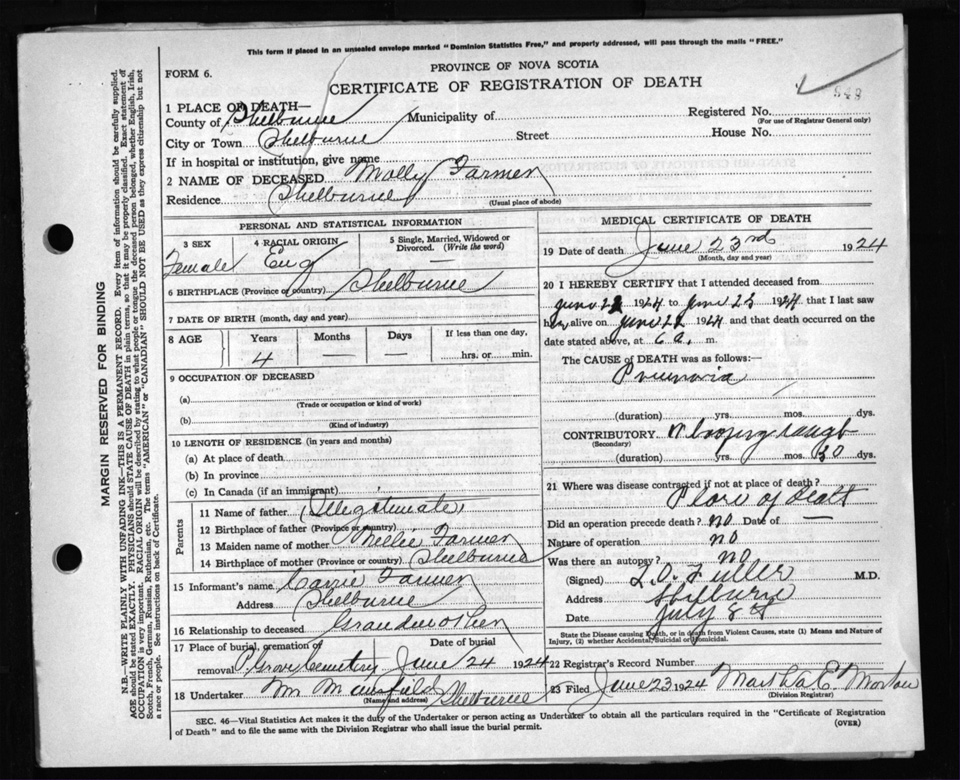 This form if placed in an unsealed envelope marked "Dominion Statistics Free," and properly addressed, will pass through the mails "FREE."
PROVINCE OF NOVA SCOTIA
FORM 6.
CERTIFICATE OF REGISTRATION OF DEATH
1 PLACE OF DEATH—
County of Shelburne Municipality of Registered No.
(For use of Registrar General only)
City or Town Shelburne Street House No.
If in hospital or institution, give name
2 NAME OF DECEASED Molly Farmer
Residence Shelburne
(Usual place of abode)
PERSONAL AND STATISTICAL INFORMATION
3 SEX 4 RACIAL ORIGIN 5 Single, Married, Widowed or Divorced. (Write the word)
Female Eng —
6 BIRTHPLACE (Province or country) Shelburne
7 DATE OF BIRTH (month, day and year)
8 AGE Years Months Days If less than one day,
4 — — hrs. or min.
9 OCCUPATION OF DECEASED
(a)
(Trade or occupation or kind of work)
(b)
(Kind of industry)
10 LENGTH OF RESIDENCE (in years and months)
(a) At place of death
(b) In province
(c) In Canada (if an immigrant)
Parents
11 Name of father (Illegitimate)
12 Birthplace of father (Province or country)
13 Maiden name of mother Nellie Farmer
14 Birthplace of mother (Province or country) Shelburne
15 Informant's name Carrie Farmer
Address Shelburne
16 Relationship to deceased Grandmother
17 Place of burial, cremation or removal P. Grove Cemetery Date of burial June 24 1924
18 Undertaker Mr Mansfield Shelburne
(Name and address)
MEDICAL CERTIFICATE OF DEATH
19 Date of death June 23rd 1924
(Month, day and year)
20 I HEREBY CERTIFY that I attended deceased from
June 1924 to June 1924 that I last saw
her alive on June 22 1924 and that death occurred on
date stated above, at 6 a. m.
The CAUSE OF DEATH was as follows:—
Pneumonia
(duration) yrs. mos. dys.
CONTRIBUTORY Whooping cough
(Secondary)
(duration) yrs. mos. 30 dys.
21 Where was disease contracted if not at place of death?
Place of death
Did an operation precede death? no Date of —
Nature of operation no
Was there an autopsy? no
(Signed) L. O. Fuller M.D.
Address Shelburne
Date July 8
State the Disease causing Death, or in death from Violent Causes, state (1) Means and Nature of
Injury, (2) whether Accidental, Suicidal or Homicidal.
22 Registrar's Record Number
23 Filed June 23 1924 Martha E. Morton
(Division Registrar)
SEC. 46—Vital Statistics Act makes it the duty of the Undertaker or person acting as Undertaker to obtain all the particulars required in the "Certificate of Registration
of Death" and to file the same with the Division Registrar who shall issue the burial permit.
(OVER)
MARGIN RESERVED FOR BINDING
N.B.—WRITE PLAINLY WITH UNFADING INK—THIS IS A PERMANENT RECORD. Every item of information should be carefully supplied.
AGE should be stated EXACTLY. PHYSICIANS should STATE CAUSE OF DEATH in plain terms, so that it may be properly classified. Exact statement of
OCCUPATION is very important. RACIAL ORIGIN will be described by stating to what people or tongue the deceased person belonged, whether English, Irish,
Scotch, French, German, Russian, Ruthenian, etc. The terms "AMERICAN" or "CANADIAN" SHOULD NOT BE USED as they express citizenship but not
a race or people. See instructions on back of Certificate.